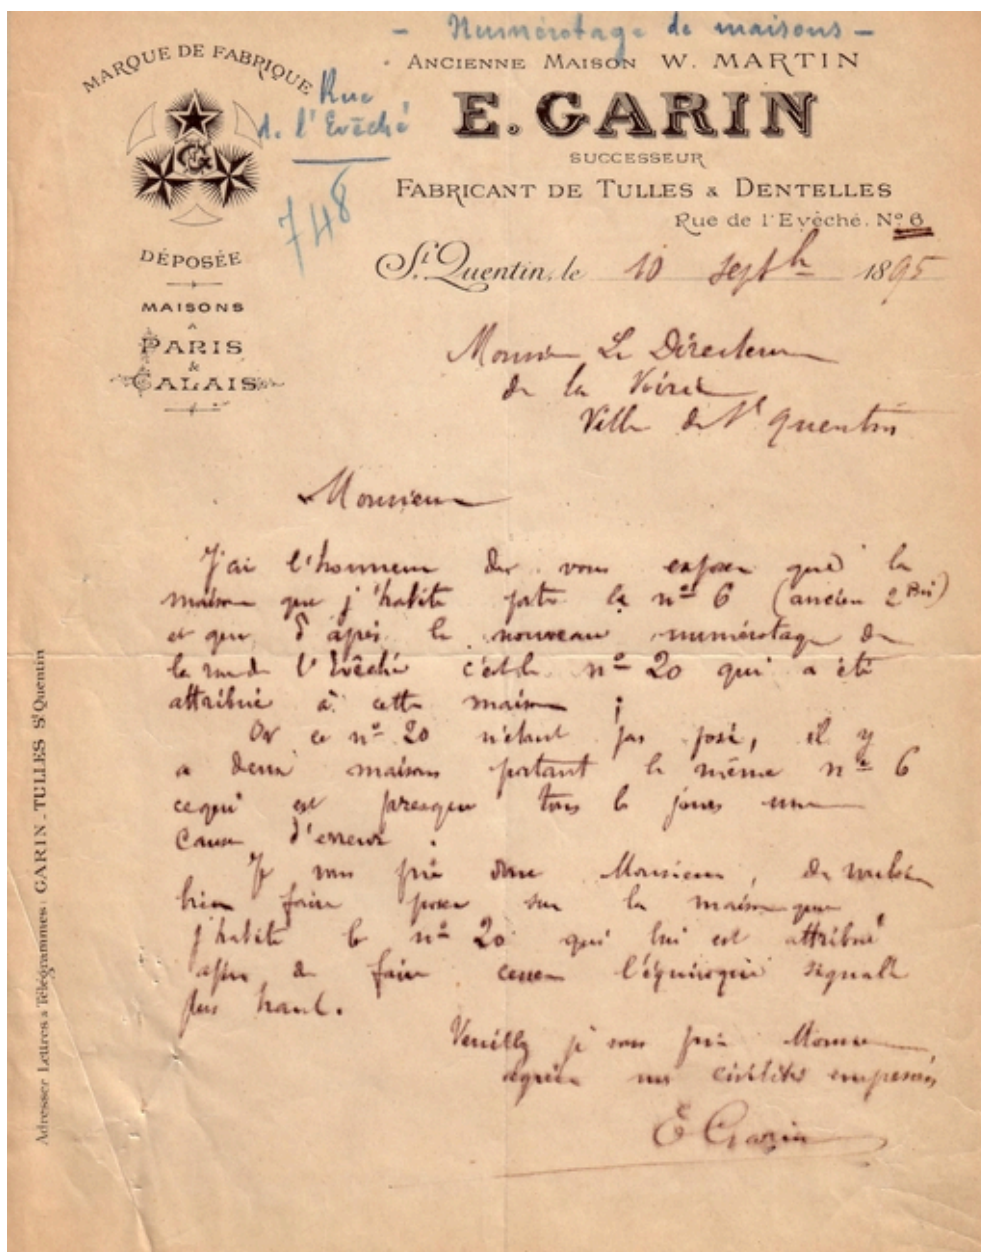 - Numérotage de maisons -
MARQUE DE FABRIQUE
Rue
de l'Evêché
748
DÉPOSÉE
MAISONS
A
PARIS
&
CALAIS
ANCIENNE MAISON W. MARTIN
E. GARIN
SUCCESSEUR
FABRICANT DE TULLES & DENTELLES
Rue de l'Evêché. No 6
St Quentin, le 10 septbre 1895
Monsieur Le Directeur
de la Voirie
Ville de St Quentin
Monsieur
J'ai l'honneur de vous exposer que la
maison que j'habite porte le no 6 (ancien 2 Bis)
et que d'après le nouveau numérotage de
la rue de l'Evêché c'est le no 20 qui a été
attribué à cette maison ;
Or ce no 20 n'étant pas posé, il y
a deux maisons portant le même no 6
ce qui est presque tous les jours une
cause d'erreur.
Je vous prie donc Monsieur, de vouloir
bien faire poser sur la maison que
j'habite le no 20 qui lui est attribué
afin de faire cesser l'équivoque signalé
plus haut.
Veuillez je vous prie Monsieur
agréer mes civilités empressées
E Garin
Adresser Lettres & Télégrammes: GARIN_TULLES St Quentin